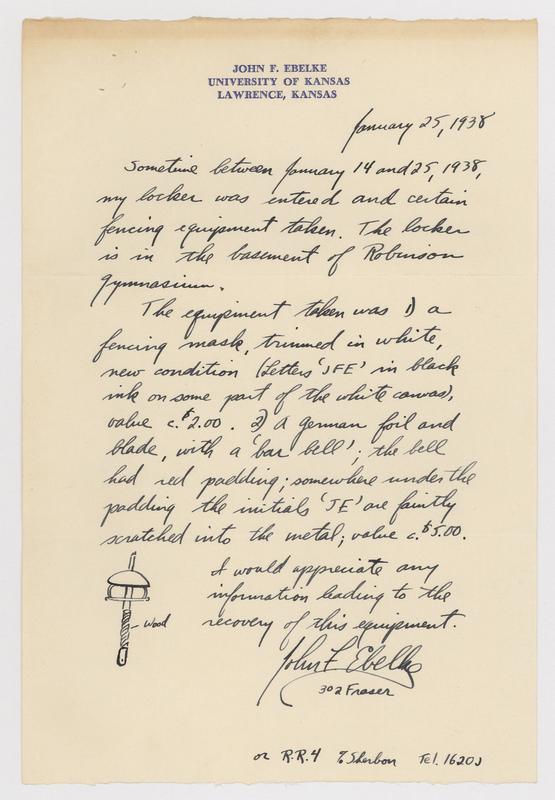 JOHN F. EBELKE
UNIVERSITY OF KANSAS
LAWRENCE, KANSAS
January 25, 1938
Sometime between January 14 and 25, 1938,
my locker was entered and certain
fencing equipment taken. The locker
is in the basement of Robinson
Gymnasium.
The equipment taken was 1) a
fencing mask, trimmed in white,
new condition (Letters 'JFE' in black
ink on some part of the white canvas),
value c. $2.00. 2) A German foil and
blade, with a 'bar bell'; the bell
had red padding; somewhere under the
padding the initials 'JE' are faintly
scratched into the metal; value c. $5.00.
wood
I would appreciate any
information leading to the
recovery of this equipment.
John F Ebelke
302 Fraser
or R.R.4 % Sherbon Tel. 1620J